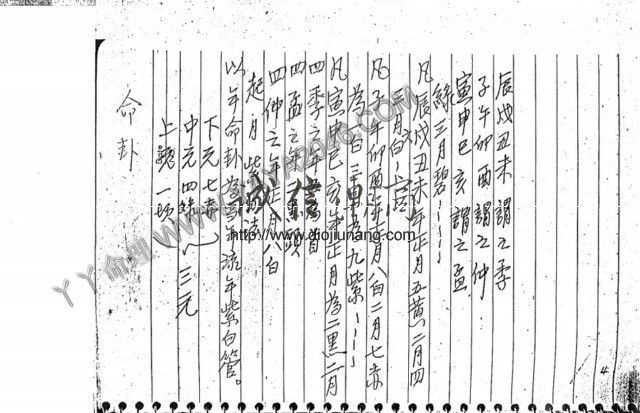 辰戌丑未謂之季
子午卯酉謂之仲
寅申巳亥謂之孟
綠三月碧
凡辰戌丑未年正月五黃二月四
凡子午卯酉年正月八白二月七赤
為一白三月為九紫
凡寅申巳亥年正月為二黑二月
四季之年
四孟之年
四仲之年 八白
起月紫
以年命卦為 流年紫白管。
下元七赤
中元四綠 三元
上 一
命卦
4
丫丫命理
http://www.diojiunang.com